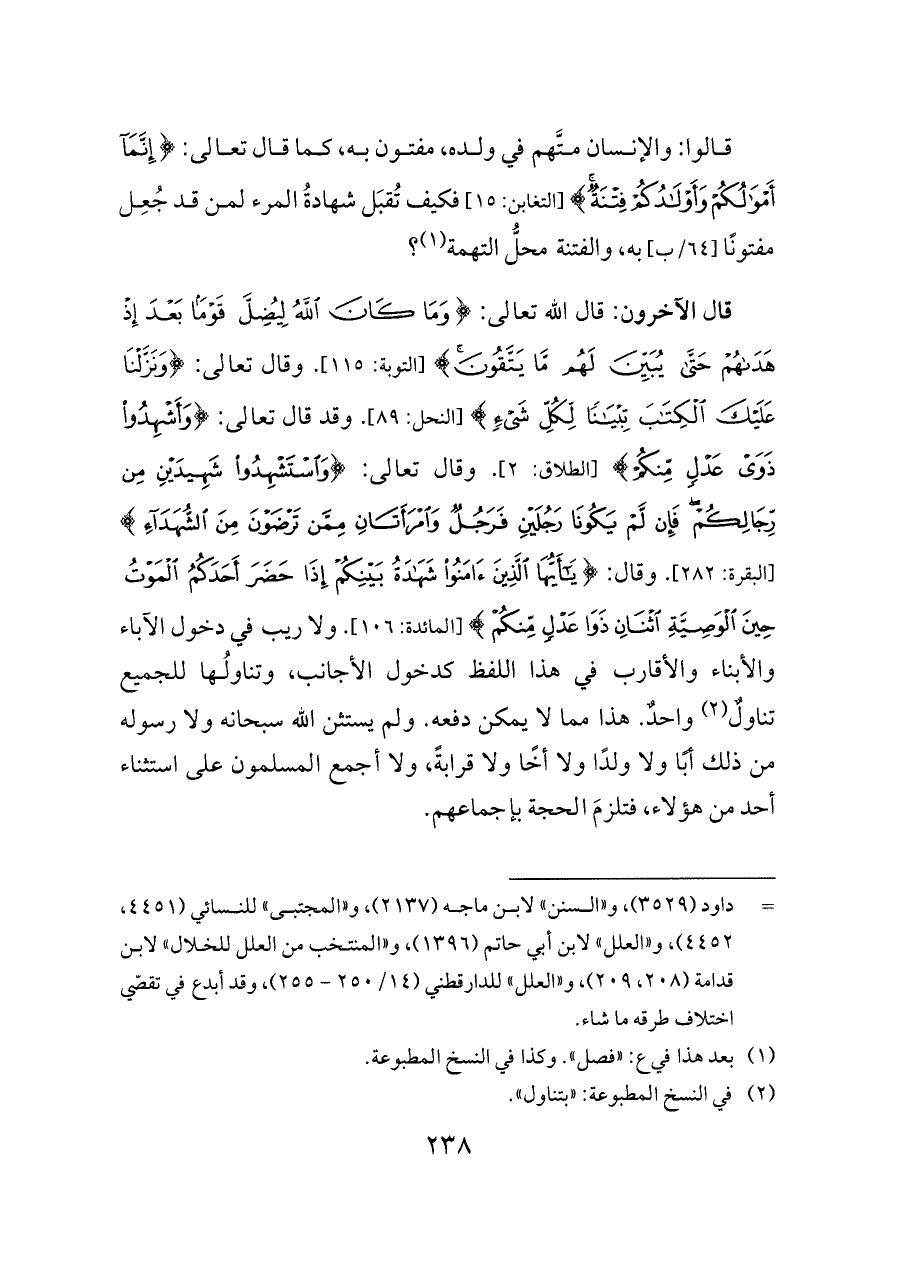 قالوا: والإنسان متَّهم في ولده، مفتون به، كما قال تعالى: ﴿ إِنَّمَآ
أَمۡوَٰلُكُمۡ وَأَوۡلَٰدُكُمۡ فِتۡنَةٞۚ ﴾ [التغابن: ١٥] فكيف تُقبَل شهادةُ المرء لمن قد جُعِل
مفتونًا [٦٤/ ب] به، والفتنة محلُّ التهمة(١)؟
قال الآخرون: قال الله تعالى: ﴿ وَمَا كَانَ ٱللَّهُ لِيُضِلَّ قَوۡمَۢا بَعۡدَ إِذۡ
هَدَىٰهُمۡ حَتَّىٰ يُبَيِّنَ لَهُم مَّا يَتَّقُونَۚ ﴾ [التوبة: ١١٥]. وقال تعالى: ﴿وَنَزَّلۡنَا
عَلَيۡكَ ٱلۡكِتَٰبَ تِبۡيَٰنٗا لِّكُلِّ شَيۡءٖ ﴾ [النحل: ٨٩]. وقد قال تعالى: ﴿وَأَشۡهِدُواْ
ذَوَيۡ عَدۡلٖ مِّنكُمۡ ﴾ [الطلاق: ٢]. وقال تعالى: ﴿وَٱسۡتَشۡهِدُواْ شَهِيدَيۡنِ مِن
رِّجَالِكُمۡۖ فَإِن لَّمۡ يَكُونَا رَجُلَيۡنِ فَرَجُلٞ وَٱمۡرَأَتَانِ مِمَّن تَرۡضَوۡنَ مِنَ ٱلشُّهَدَآءِ ﴾
[البقرة: ٢٨٢]. وقال: ﴿ يَٰٓأَيُّهَا ٱلَّذِينَ ءَامَنُواْ شَهَٰدَةُ بَيۡنِكُمۡ إِذَا حَضَرَ أَحَدَكُمُ ٱلۡمَوۡتُ
حِينَ ٱلۡوَصِيَّةِ ٱثۡنَانِ ذَوَا عَدۡلٖ مِّنكُمۡ ﴾ [المائدة: ١٠٦]. ولا ريب في دخول الآباء
والأبناء والأقارب في هذا اللفظ كدخول الأجانب، وتناولُها للجميع
تناولٌ(٢) واحدٌ. هذا مما لا يمكن دفعه. ولم يستثن الله سبحانه ولا رسوله
من ذلك أبًا ولا ولدًا ولا أخًا ولا قرابةً، ولا أجمع المسلمون على استثناء
أحد من هؤلاء، فتلزمَ الحجة بإجماعهم.
= داود (٣٥٢٩)، و«السنن» لابن ماجه (٢١٣٧)، و«المجتبى» للنسائي (٤٤٥١،
٤٤٥٢)، و«العلل» لابن أبي حاتم (١٣٩٦)، و«المنتخب من العلل للخلال» لابن
قدامة (٢٠٨، ٢٠٩)، و«العلل» للدارقطني (١٤/ ٢٥٠ - ٢٥٥)، وقد أبدع في تقصّي
اختلاف طرقه ما شاء.
(١) بعد هذا في ع: «فصل». وكذا في النسخ المطبوعة.
(٢) في النسخ المطبوعة: «بتناول».
٢٣٨